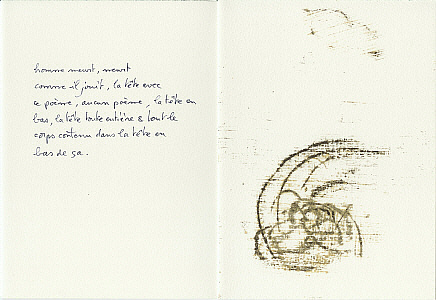 homme meurt, meurt
comme il jouit, la tête avec
ce poème, aucun poème, la tête en
bas, la tête toute entière & tout le
corps contenu dans la tête en
bas de ça.